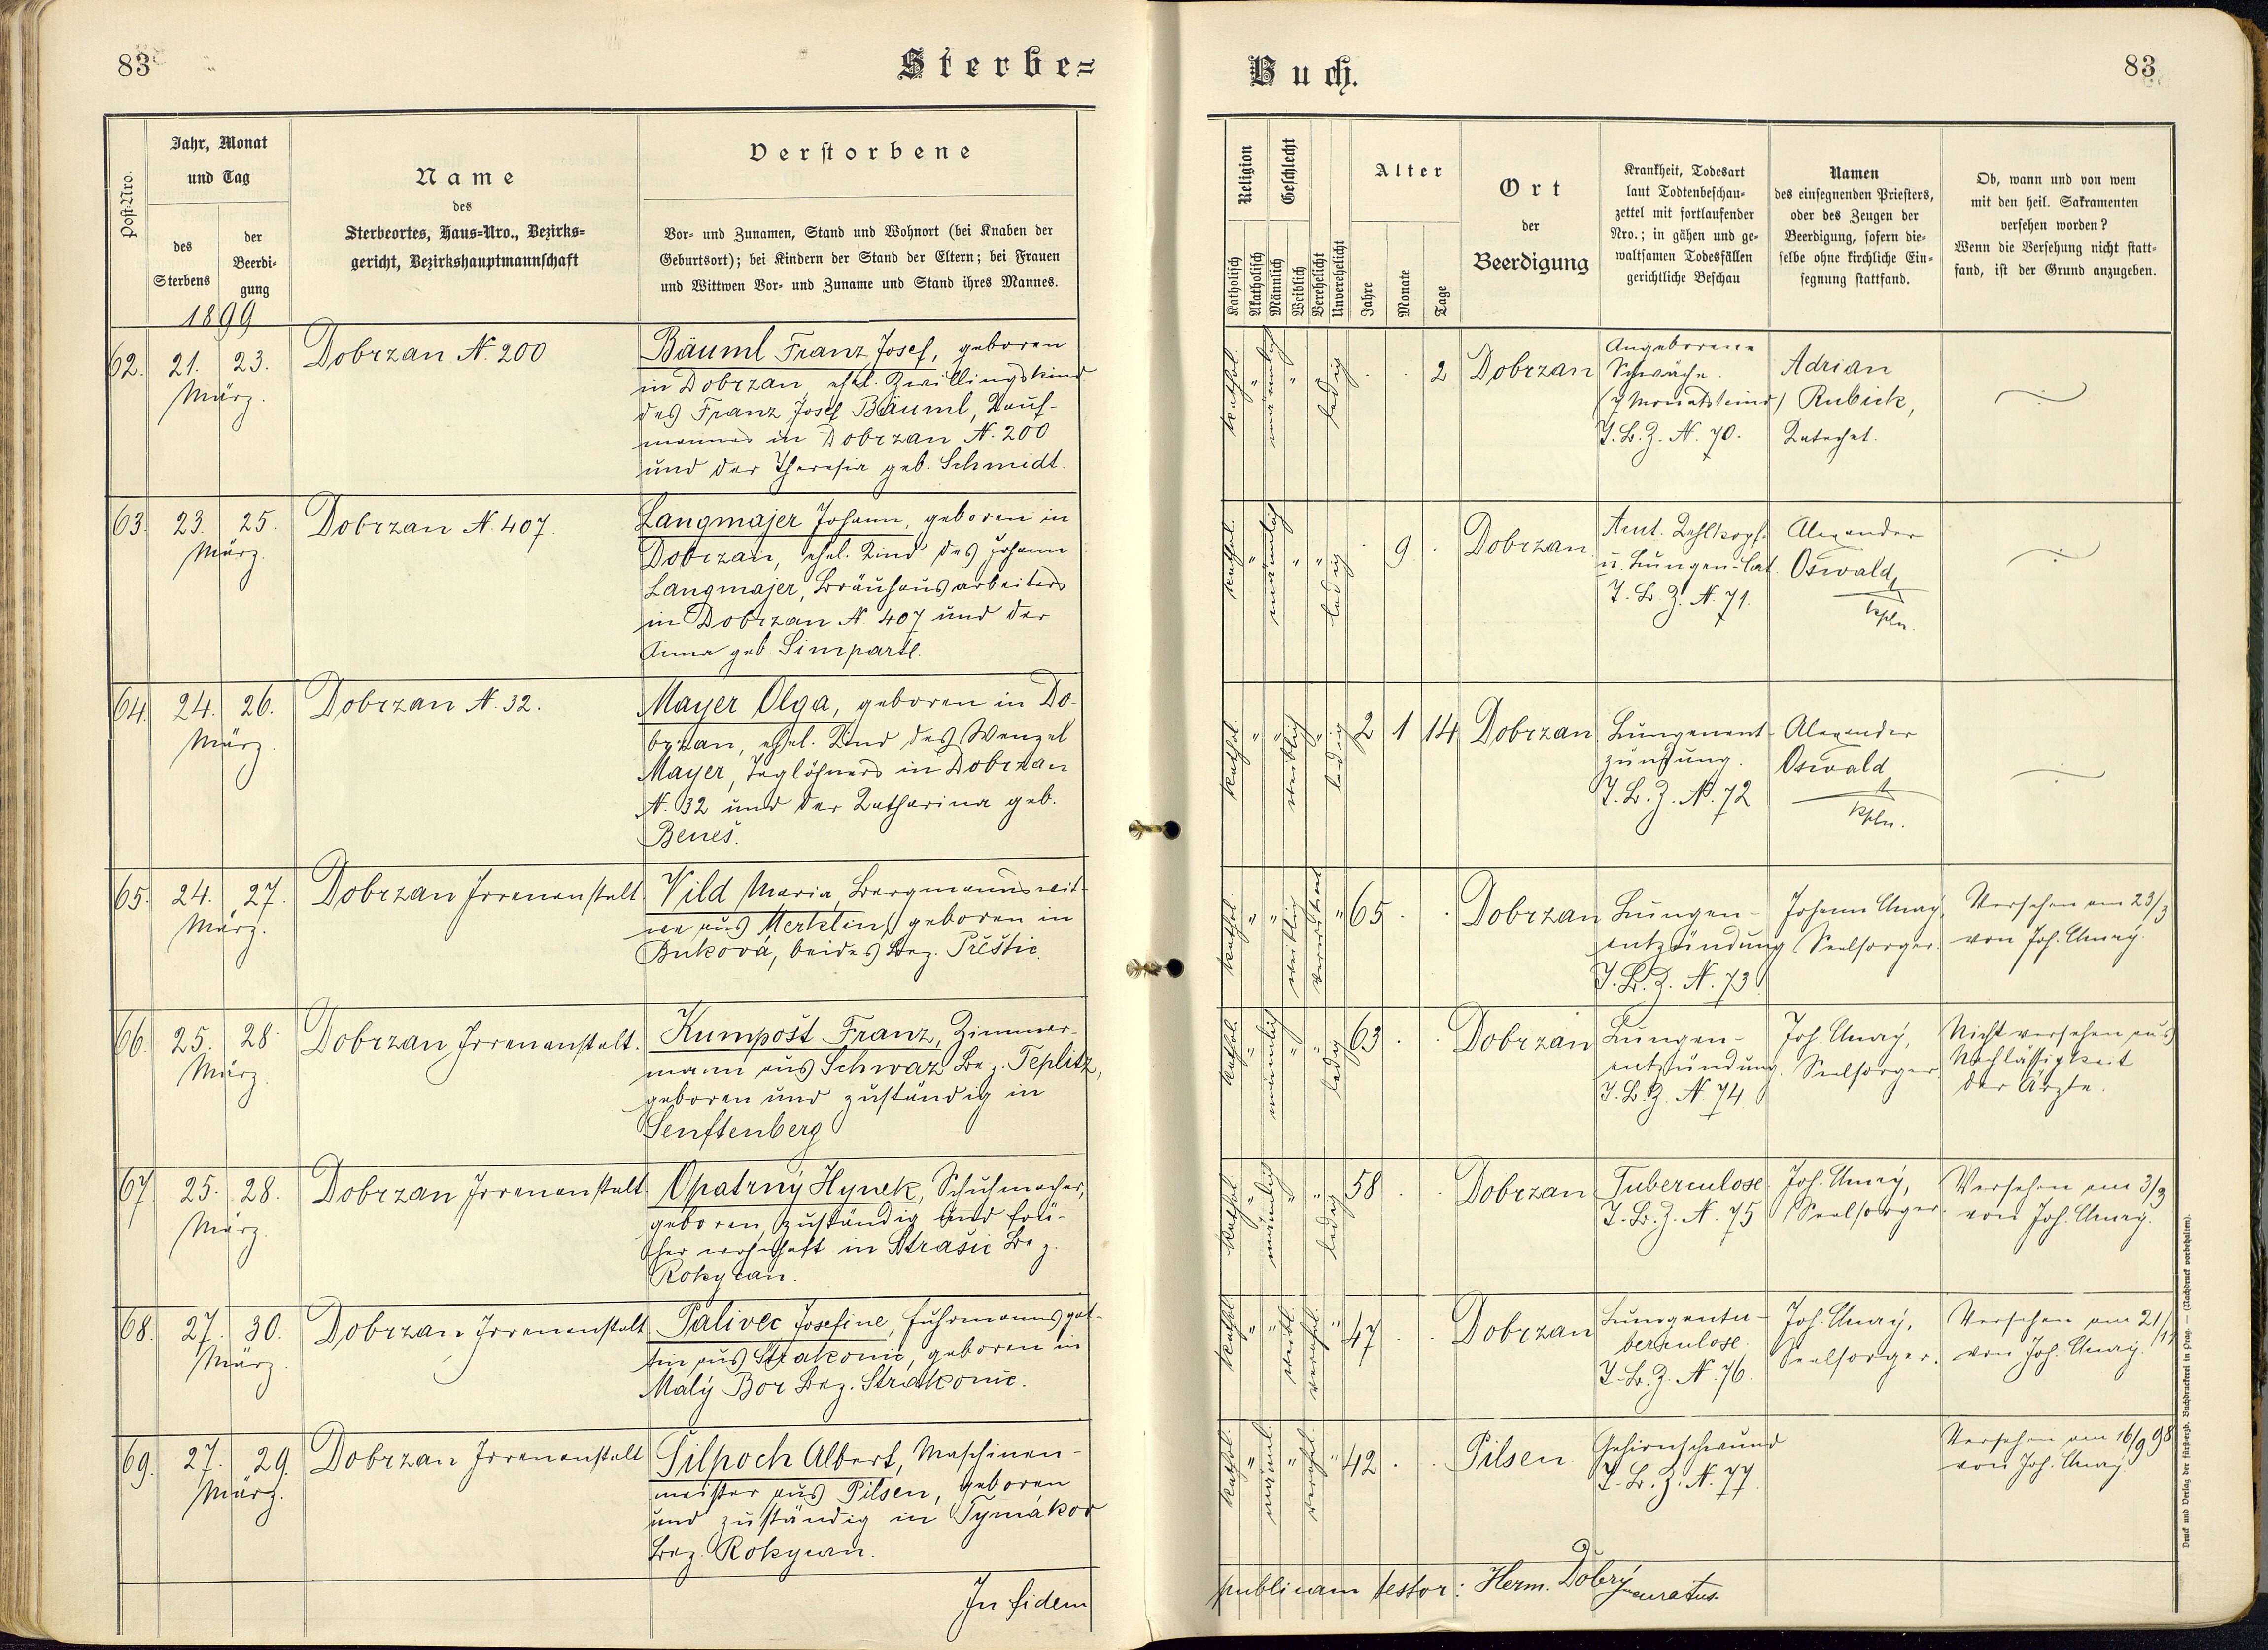 83
Sterbe=
Post=Nro.
Jahr, Monat
und Tag
des
Sterbens
der
Beerdi=
gung
1899
Name
des
Sterbeortes, Haus=Nro., Bezirks=
gericht, Bezirkshauptmannschaft
Verstorbene
Vor= und Zunamen, Stand und Wohnort (bei Knaben der
Geburtsort); bei Kindern der Stand der Eltern; bei Frauen
und Wittwen Vor= und Zuname und Stand ihres Mannes.
62. 21. 23. Dobrzan N. 200 Bäuml Franz Josef, geboren
März. in Dobrzan, ehel. Zwillingskind
des Franz Josef Bäuml, Kauf-
mannes in Dobrzan N. 200
und der Theresia geb. Schmidt.
63. 23. 25. Dobrzan N. 407. Langmajer Johann, geboren in
März. Dobrzan, ehel. Kind des Johann
Langmajer, Bräuhausarbeiters
in Dobrzan N. 407 und der
Anna geb. Simpartl.
64. 24. 26. Dobrzan N. 32. Mayer Olga, geboren in Do-
März. brzan, ehel. Kind des Wenzel
Mayer, Taglöhners in Dobrzan
N. 32 und der Katharina geb.
Beneš.
65. 24. 27. Dobrzan Irrenanstalt. Vild Maria, Bergmannswit-
März. we aus Merklin, geboren in
Buková, beides Bez. Přestic.
66. 25. 28. Dobrzan Irrenanstalt. Kumpošt Franz, Zimmer-
März. mann aus Schwaz Bez. Teplitz,
geboren und zuständig in
Senftenberg
67. 25. 28. Dobrzan Irrenanstalt. Opatrný Hynek, Schuhmacher,
März. geboren, zuständig und frü-
her wohnhaft in Strašic Bez.
Rokycan.
68. 27. 30. Dobrzan Irrenanstalt Palivec Josefine, Fuhrmannsgat-
März. tin aus Strakonic, geboren in
Malý Bor Bez. Strakonic.
69. 27. 29. Dobrzan Irrenanstalt Šilhoch Albert, Maschinen-
März. meister aus Pilsen, geboren
und zuständig in Tymákov
Bez. Rokycan.
In fidem
Buch.
83
Religion
Geschlecht
Katholisch
Akatholisch
Männlich
Weiblich
Verehelicht
Unverehelicht
Alter
Jahre
Monate
Tage
Ort
der
Beerdigung
Krankheit, Todesart
laut Todtenbeschau=
zettel mit fortlaufender
Nro.; in gähen und ge=
waltsamen Todesfällen
gerichtliche Beschau
Namen
des einsegnenden Priesters,
oder des Zeugen der
Beerdigung, sofern die=
selbe ohne kirchliche Ein=
segnung stattfand.
Ob, wann und von wem
mit den heil. Sakramenten
versehen worden?
Wenn die Versehung nicht statt=
fand, ist der Grund anzugeben.
kathol. " männlich " " ledig . . 2 Dobrzan Angeborene Adrian
Schwäche. Rubick,
(7 Monatskind) Katechet.
T. B. Z. N. 70.
kathol. " männlich " " ledig . 9 . Dobrzan Acut. Kehlkopf- Alexander
u. Lungen-Cat. Oswald,
T. B. Z. N. 71. Kpln.
kathol. " " weiblich " ledig 2 1 14 Dobrzan Lungenent- Alexander
zündung. Oswald
T. B. Z. N. 72 Kpln.
kathol. " " weiblich verwitwet " 65 . . Dobrzan Lungen- Johann Versehen am 23/3
entzündung Seelsorger. von Joh.
T. B. Z. N. 73
kathol. " männlich " " ledig 63 . . Dobrzan Lungen- Joh. Nicht versehen aus
entzündung. Seelsorger. Nachlässigkeit
T. B. Z. N. 74. der Ärzte.
kathol. " männlich " " ledig 58 . . Dobrzan Tuberculose Joh. Versehen am 3/3
T. B. Z. N. 75 Seelsorger. von Joh.
kathol. " " weibl. verehl. " 47 . . Dobrzan Lungentu- Joh. Versehen am 21/11
berculose. Seelsorger. von Joh.
T. B. Z. N. 76.
kathol. " männl. " verehel. " 42 . . Pilsen Gehirnschwund Versehen am 16/9 98
T. B. Z. N. 77. von Joh.
publicam testor: Herm. Dobrý curatus.
Druck und Verlag der fürsterzb. Buchdruckerei in Prag. — (Nachdruck vorbehalten).